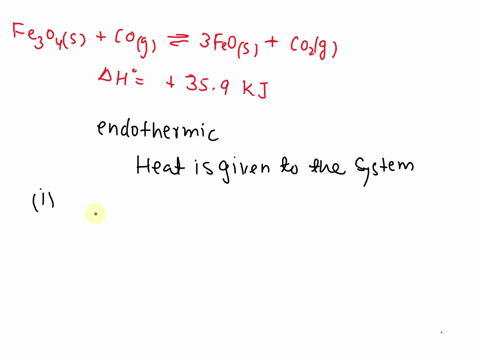 Fe₃O₄(s) + CO(g) ⇌ 3FeO(s) + CO₂(g)
ΔH° = + 35.9 KJ
endothermic
Heat is given to the System
(i)